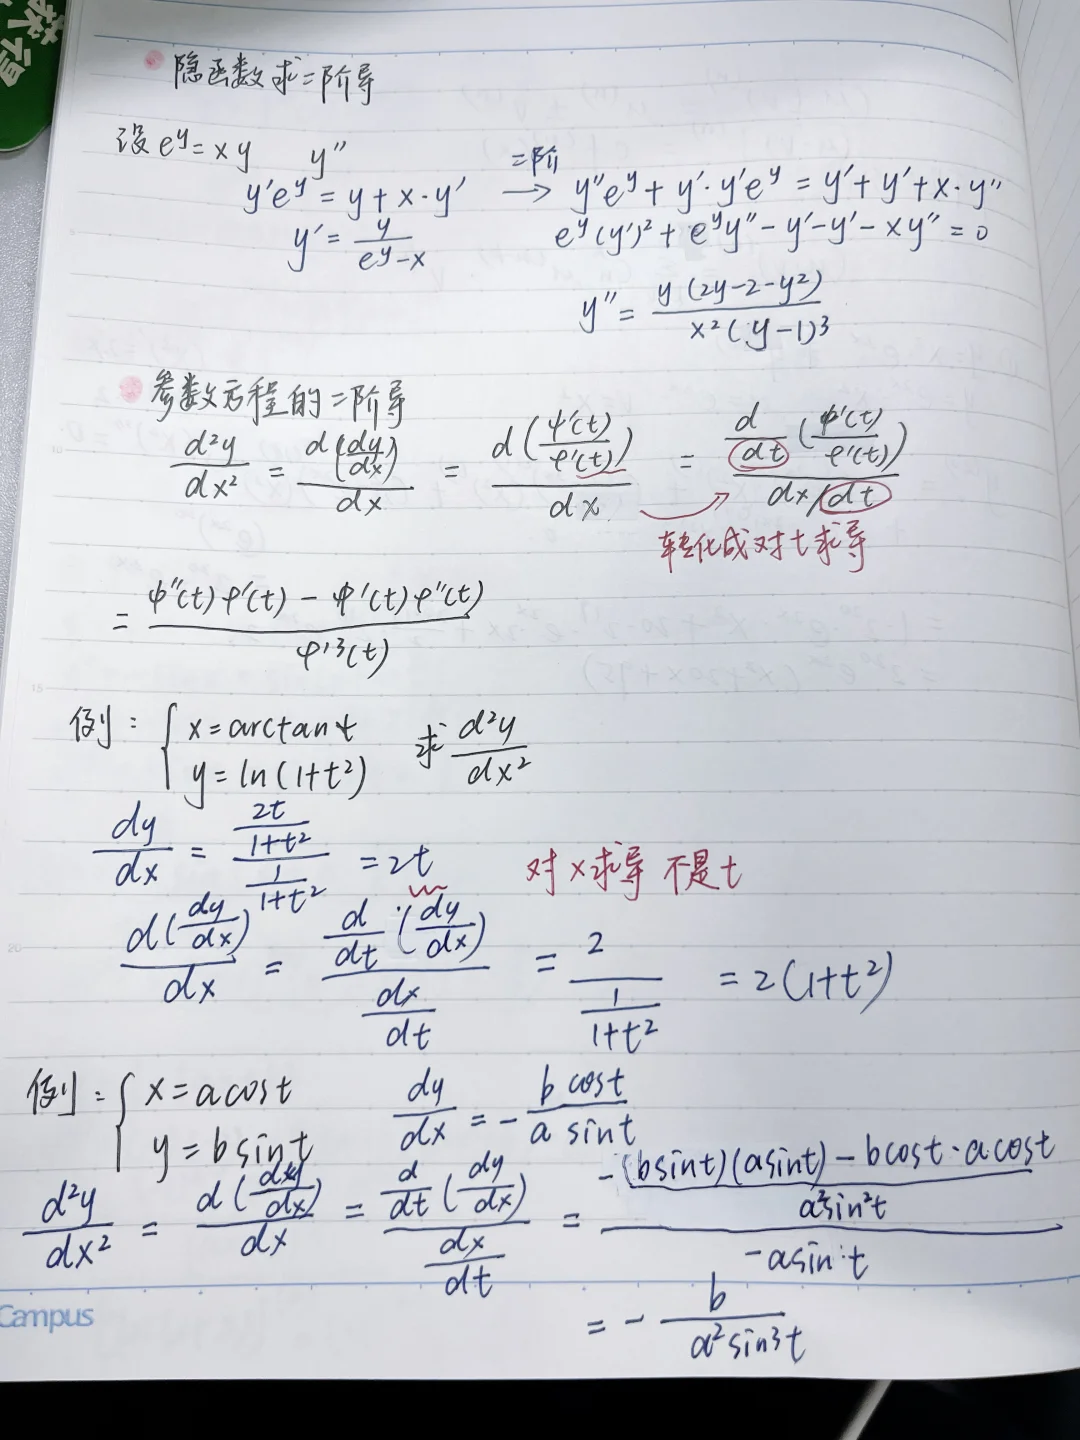 隐函数求二阶导
设 e^y = xy    y″
y′e^y = y + x·y′ 二阶→ y″e^y + y′·y′e^y = y′ + y′ + x·y″
y′ = y/(e^y - x)    e^y(y′)² + e^y y″ - y′ - y′ - xy″ = 0
y″ = y(2y-2-y²)/(x²(y-1)³)
参数方程的二阶导
d²y/dx² = d(dy/dx)/dx = d(ψ′(t)/φ′(t))/dx = d/dt(ψ′(t)/φ′(t))/(dx/dt)
转化成对t求导
= (ψ″(t)φ′(t) - ψ′(t)φ″(t))/φ′³(t)
例: { x = arctan t    求 d²y/dx²
y = ln(1+t²)
dy/dx = (2t/(1+t²))/(1/(1+t²)) = 2t    对x求导 不是t
d(dy/dx)/dx = (d/dt(dy/dx))/(dx/dt) = 2/(1/(1+t²)) = 2(1+t²)
例: { x = a cos t    dy/dx = - b cost/a sint
y = b sin t
d²y/dx² = d(dy/dx)/dx = (d/dt(dy/dx))/(dx/dt) = (-(b sint)(a sint) - b cost·a cost/a² sin² t)/(-a sin t)
= - b/(a² sin³ t)
Campus